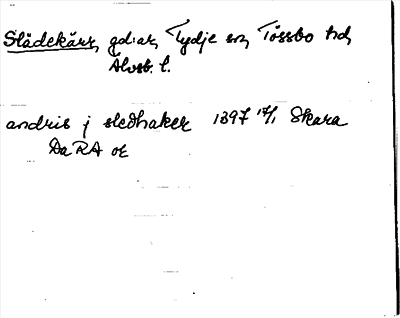 Slädekärr, gdar, Tydje sn, Tössbo hd,
Älvsb. l.
andris j sledhaker 1397 17/1 Skara
DaRA or